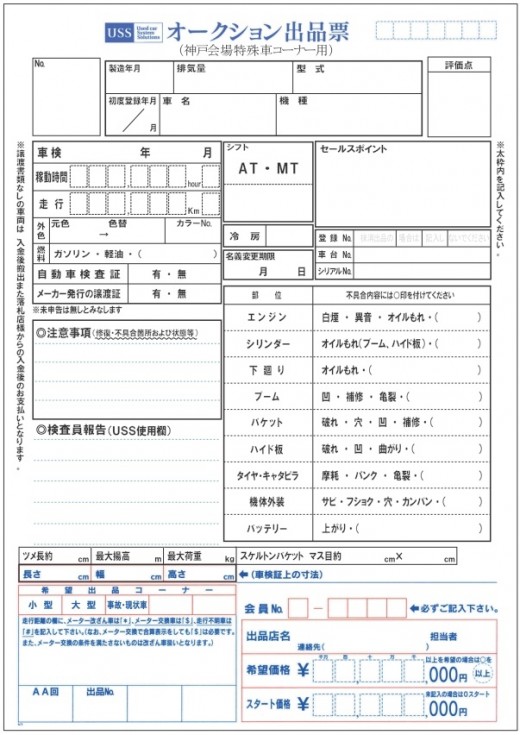 USS Used car System Solutions オークション出品票
(神戸会場特殊車コーナー用)
No.
製造年月 排気量 型式
評価点
初度登録年月 車名 機種
／ 月
※譲渡書類なしの車両は、入金後搬出また落札店様からの入金後のお支払いとなります。
※太枠内を記入してください。
車検 年 月
シフト
AT・MT
セールスポイント
稼動時間 hour
走行 Km
外色 元色 色替 カラーNo.
→
冷房
登録No.
燃料 ガソリン・軽油・( )
名義変更期限
月 日
車台No.
自動車検査証 有・無
シリアルNo.
メーカー発行の譲渡証 有・無
※未申告は無しとみなします
部位 不具合内容には○印を付けてください
エンジン 白煙・異音・オイルもれ・( )
◎注意事項(修復・不具合箇所および状態等)
シリンダー オイルもれ(ブーム、ハイド板)・( )
下廻り オイルもれ・( )
ブーム 凹・補修・亀裂・( )
◎検査員報告(USS使用欄)
バケット 破れ・穴・凹・補修・( )
ハイド板 破れ・凹・曲がり・( )
タイヤ・キャタピラ 摩耗・パンク・亀裂・( )
機体外装 サビ・フショク・穴・カンバン・( )
バッテリー 上がり・( )
ツメ長約 cm 最大揚高 m 最大荷重 kg スケルトンバケット マス目約 cm× cm
長さ cm 幅 cm 高さ cm ←(車検証上の寸法)
希望出品コーナー
小型 大型 事故・現状車
会員No. － ←必ずご記入下さい。
走行距離の欄に、メーター改ざん車は「＊」、メーター交換車は「$」、走行不明車は
「#」を記入して下さい。(なお、メーター交換で合算表示をしても「$」は必要です。
また、メーター交換の条件を満たさないものは改ざん車扱いとなります。)
出品店名 担当者
連絡先( )
希望価格 ¥ ,000円 以上を希望の場合は○を 以上
AA回 出品No.
スタート価格 ¥ ,000円 未記入の場合は0スタート